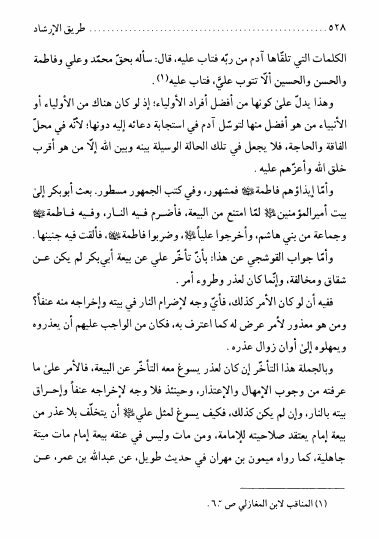 ٥٢٨ ........................................................ طريق الإرشاد
الكلمات التي تلقّاها آدم من ربّه فتاب عليه، قال: سأله بحقّ محمّد وعلي وفاطمة
والحسن والحسين ألّا تتوب عليَّ، فتاب عليه(١).
وهذا يدلّ علىٰ كونها من أفضل أفراد الأولياء؛ إذ لو كان هناك من الأولياء أو
الأنبياء من هو أفضل منها لتوسّل آدم في استجابة دعائه إليه دونها؛ لأنّه في محلّ
الفاقة والحاجة، فلا يجعل في تلك الحالة الوسيلة بينه وبين الله إلّا من هو أقرب
خلق الله وأعزّهم عليه.
وأمّا إيذاؤهم فاطمة ﷺ فمشهور، وفي كتب الجمهور مسطور. بعث أبوبكر إلىٰ
بيت أميرالمؤمنين ﷺ لمّا امتنع من البيعة، فأضرم فيه النار، وفيه فاطمة ﷺ
وجماعة من بني هاشم، وأخرجوا علياً ﷺ، وضربوا فاطمة ﷺ، فألقت فيه جنينها.
وأمّا جواب القوشجي عن هذا: بأنّ تأخّر علي عن بيعة أبي‌بكر لم يكن عن
شقاق ومخالفة، وإنّما كان لعذر وطروء أمر.
ففيه أن لو كان الأمر كذلك، فأيّ وجه لإضرام النار في بيته وإخراجه منه عنفاً؟
ومن هو معذور لأمر عرض له كما اعترف به، فكان من الواجب عليهم أن يعذروه
ويمهلوه إلىٰ أوان زوال عذره.
وبالجملة هذا التأخّر إن كان لعذر يسوغ معه التأخّر عن البيعة، فالأمر علىٰ ما
عرفته من وجوب الإمهال والإعتذار، وحينئذ فلا وجه لإخراجه عنفاً وإحراق
بيته بالنار، وإن لم يكن كذلك، فكيف يسوغ لمثل علي ﷺ أن يتخلّف بلا عذر من
بيعة إمام يعتقد صلاحيته للإمامة، ومن مات وليس في عنقه بيعة إمام مات ميتة
جاهلية، كما رواه ميمون بن مهران في حديث طويل، عن عبدالله بن عمر، عن
(١) المناقب لابن المغازلي ص